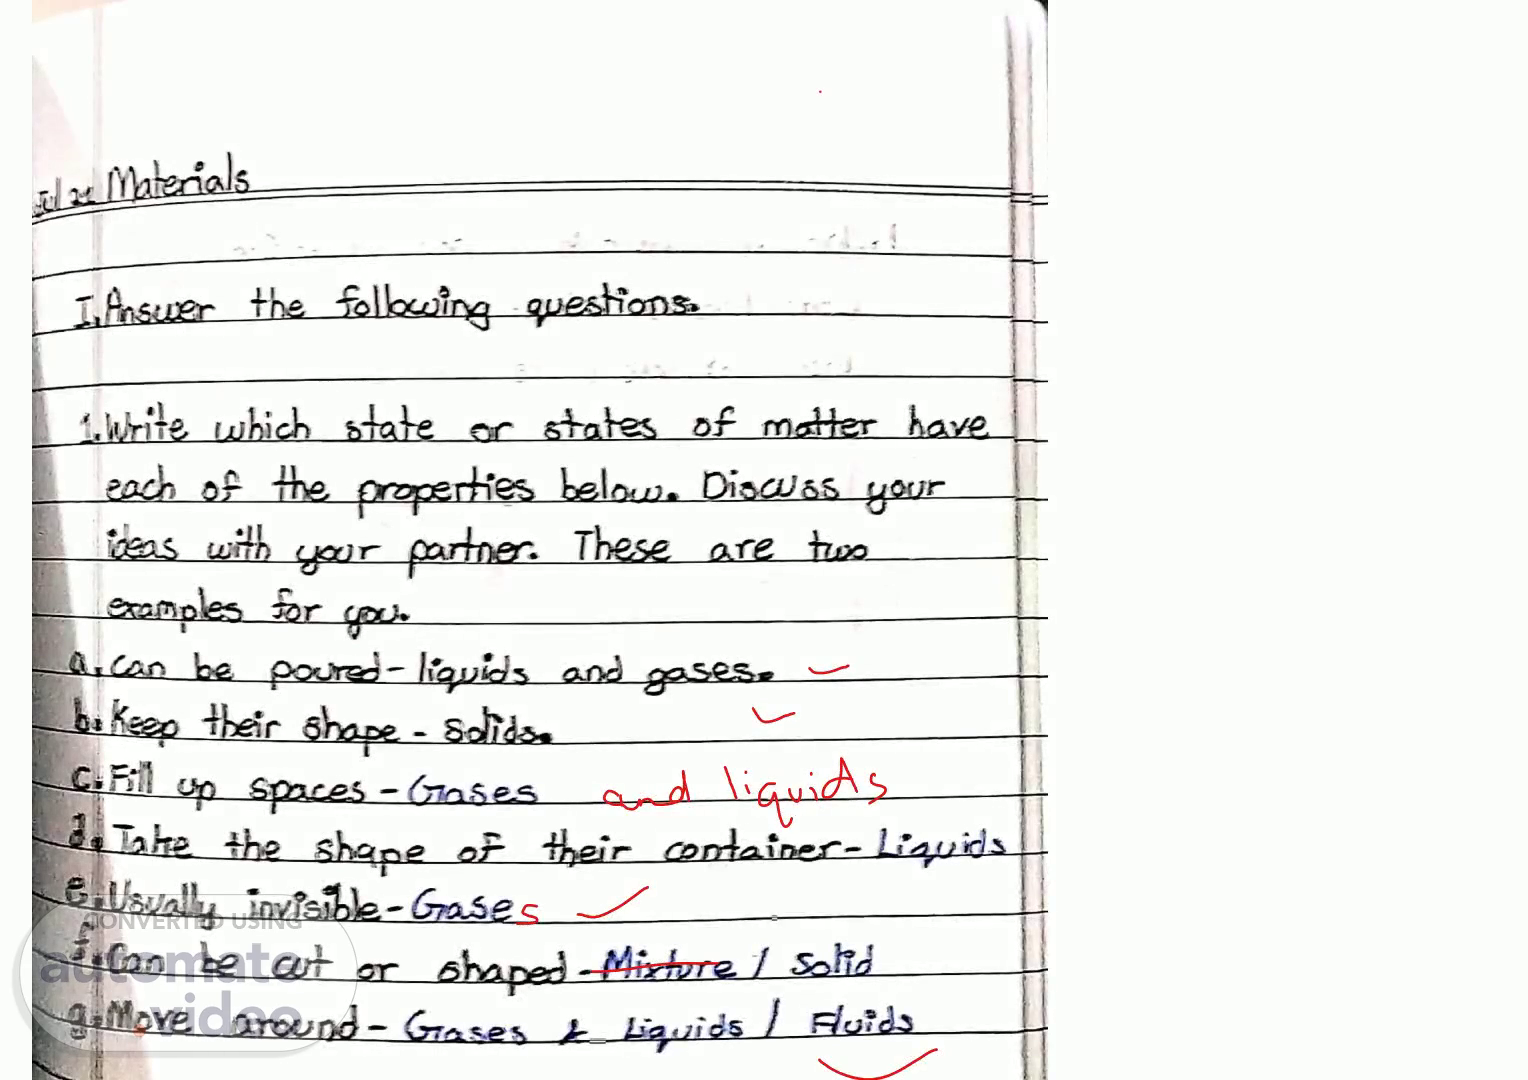 Jul 21 Materials
I. Answer the following questions.
1. Write which state or states of matter have
each of the properties below. Discuss your
ideas with your partner. These are two
examples for you.
a. Can be poured - liquids and gases.
b. Keep their shape - Solids.
c. Fill up spaces - Gases and liquids
d. Take the shape of their container - Liquids
e. Usually invisible - Gases
f. Can be cut or shaped - Mixture / Solid
g. Move around - Gases & Liquids / Fluids
CONVERTED USING
automate
video